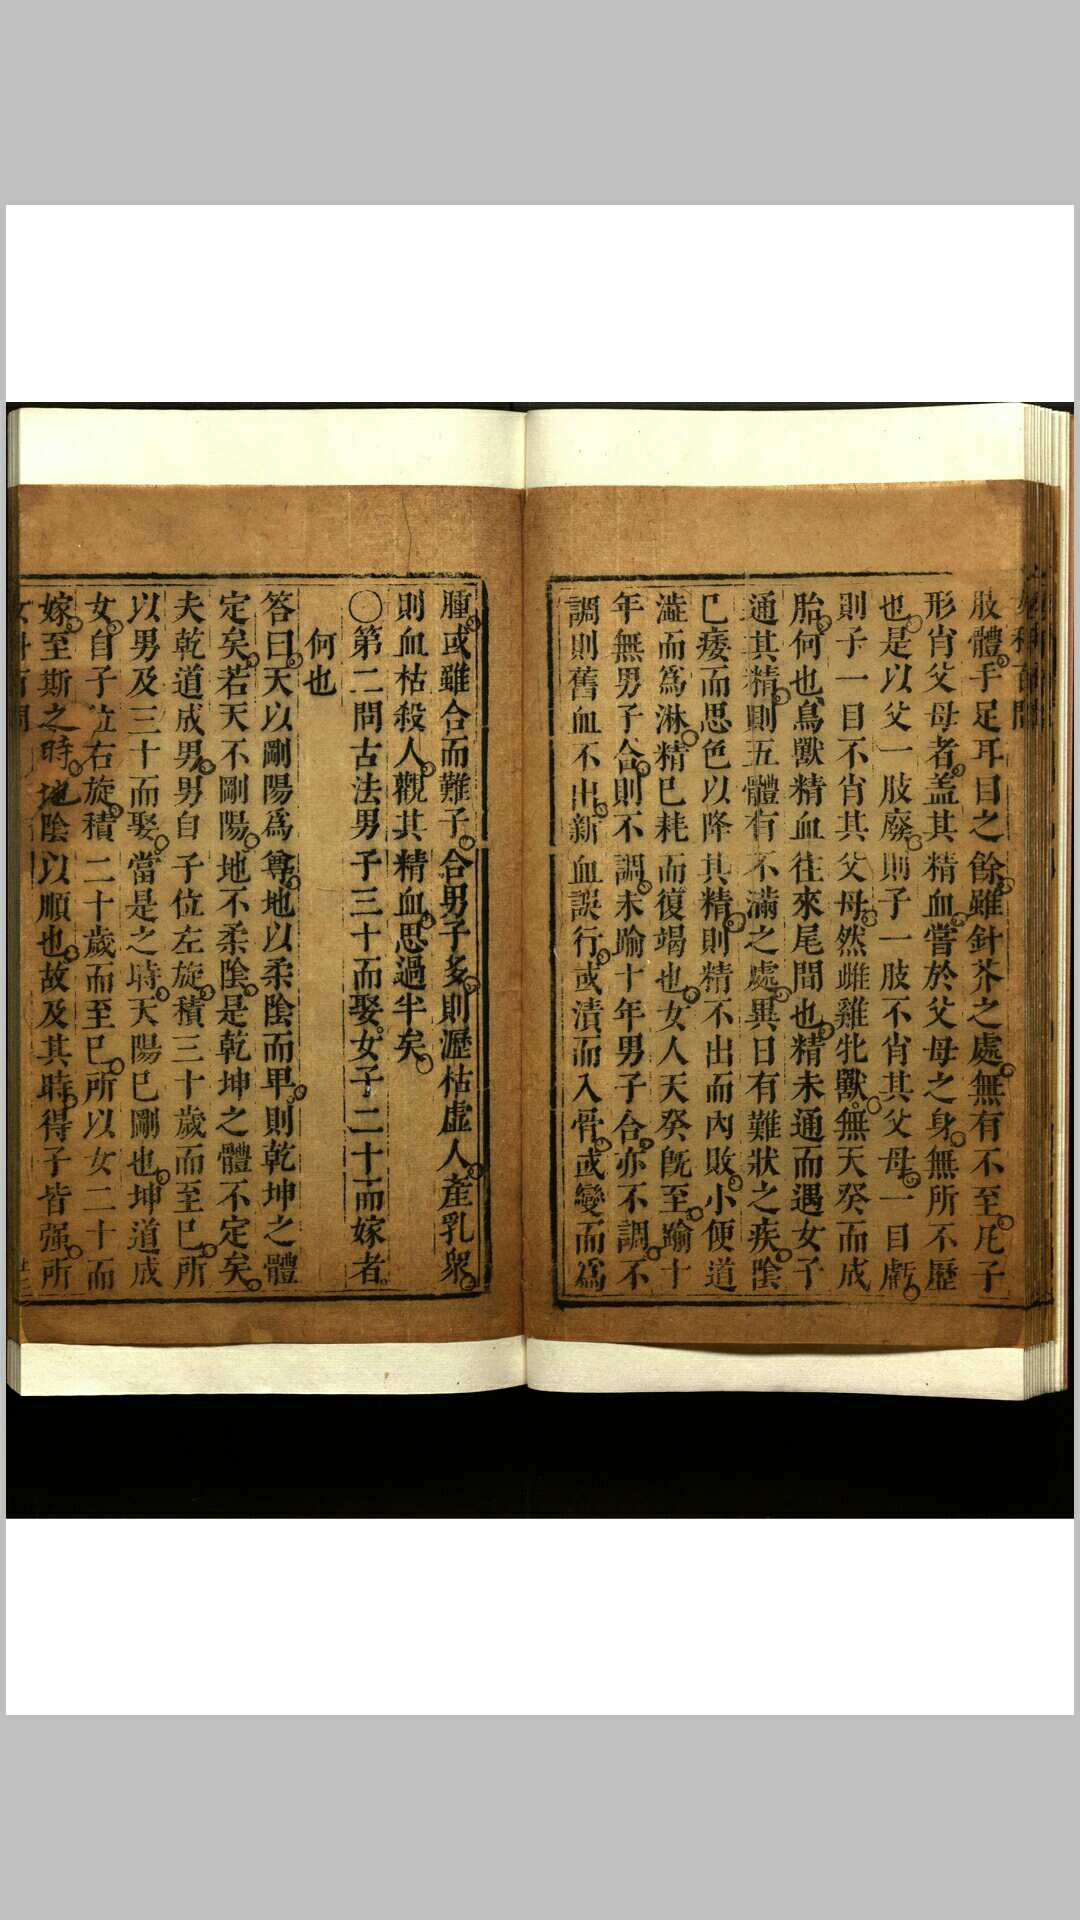 肢體手足耳目之餘雖針芥之處無有不至凡子
形肖父母者盖其精血嘗於父母之身無所不歷
也是以父一肢廢則子一肢不肖其父母一目虧
則子一目不肖其父母然雌雞牝獸無天癸而成
胎何也鳥獸精血往來尾間也精未通而遇女子
通其精則五體有不滿之處異日有難狀之疾陰
已痿而思色以降其精則精不出而內敗小便道
澁而爲淋精已耗而復竭也女人天癸旣至踰十
年無男子合則不調未踰十年男子合亦不調不
調則舊血不出新血誤行或漬而入骨或變而爲
腫或雖合而難子合男子多則瀝枯虛人產乳衆
則血枯殺人觀其精血思過半矣
〇第二問古法男子三十而娶女子二十而嫁者
何也
答曰天以剛陽爲尊地以柔陰而卑則乾坤之體
定矣若天不剛陽地不柔陰是乾坤之體不定矣
夫乾道成男男自子位左旋積三十歲而至巳所
以男及三十而娶當是之時天陽已剛也坤道成
女女自子位右旋積二十歲而至巳所以女二十而
嫁至斯之時地陰以順也故及其時得子皆强所